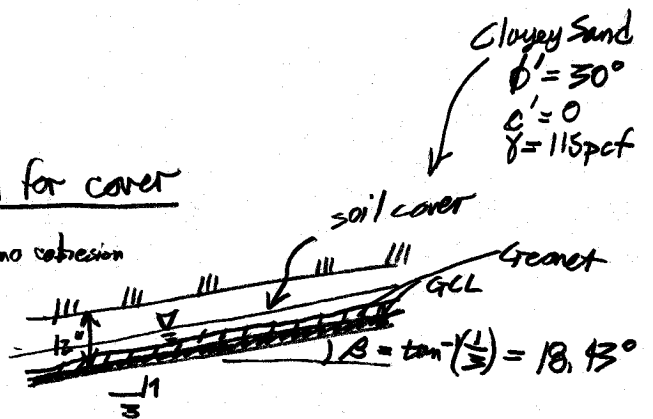 Clayey Sand
ϕ' = 30°
c' = 0
γ = 115 pcf
for cover
no cohesion
soil cover
Geonet
GCL
12"
β = tan⁻¹(1/3) = 18.43°
1
3